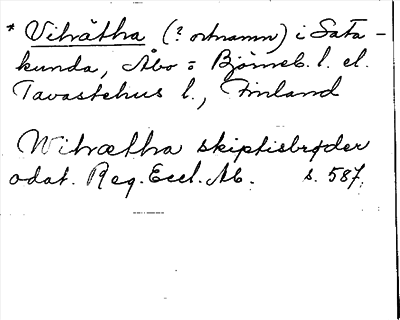 * Vitvätha (? ortnamn) i Sata-
kunda, Åbo o Björneb. l. el.
Tavastehus l., Finland
Witvætha skiptisbrøder
odat. Reg. Eccl. Ab. s. 587.